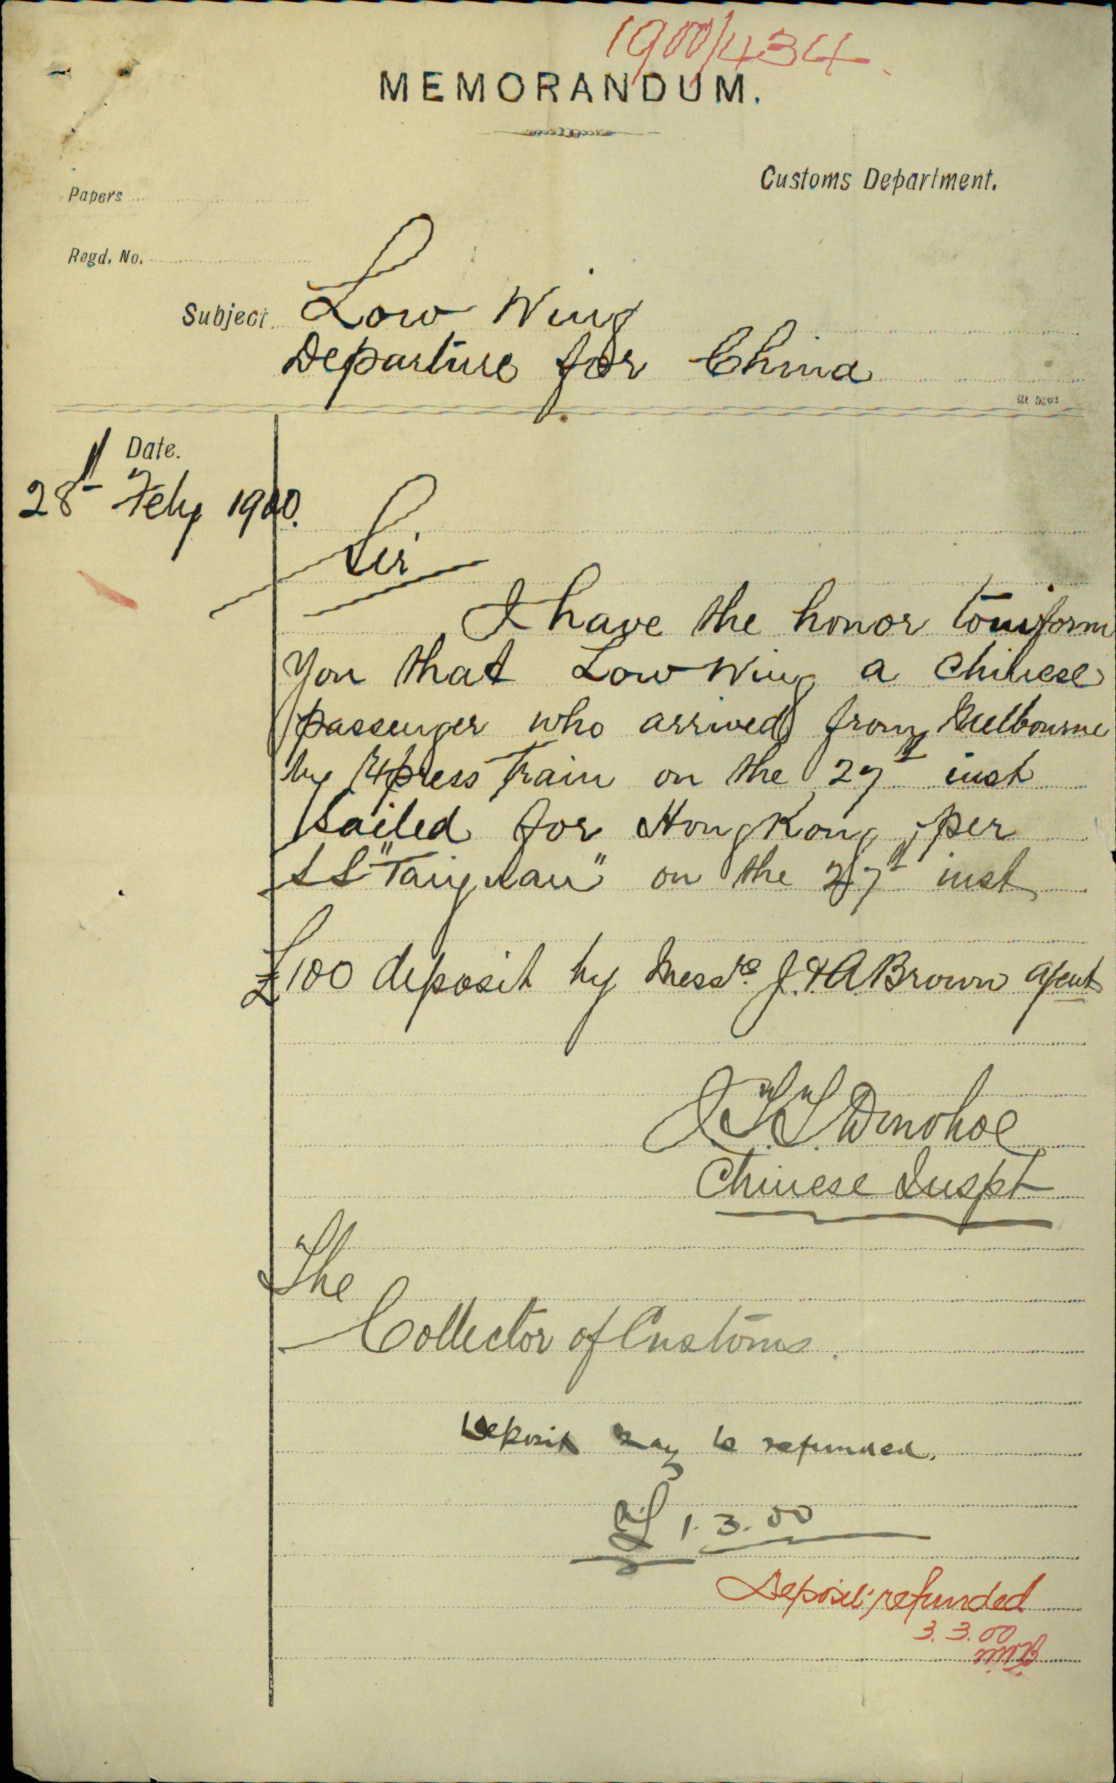 1900/434.
MEMORANDUM.
Customs Department.
Papers
Regd. No.
Subject. Low Wing
Departure for China
Date.
28th Feby 1900.
Sir
I have the honor to inform
you that Low Wing a Chinese
passenger who arrived from Melbourne
by Xpress Train on the 27th inst
sailed for Hong Kong per
SS "Taiyuan" on the 27th inst
£100 deposit by Messrs. J. & A. Brown agents
J.T.T. Donohoe
Chinese Inspt
The
Collector of Customs.
Deposit may be refunded.
1.3.00
Deposit refunded
3.3.00